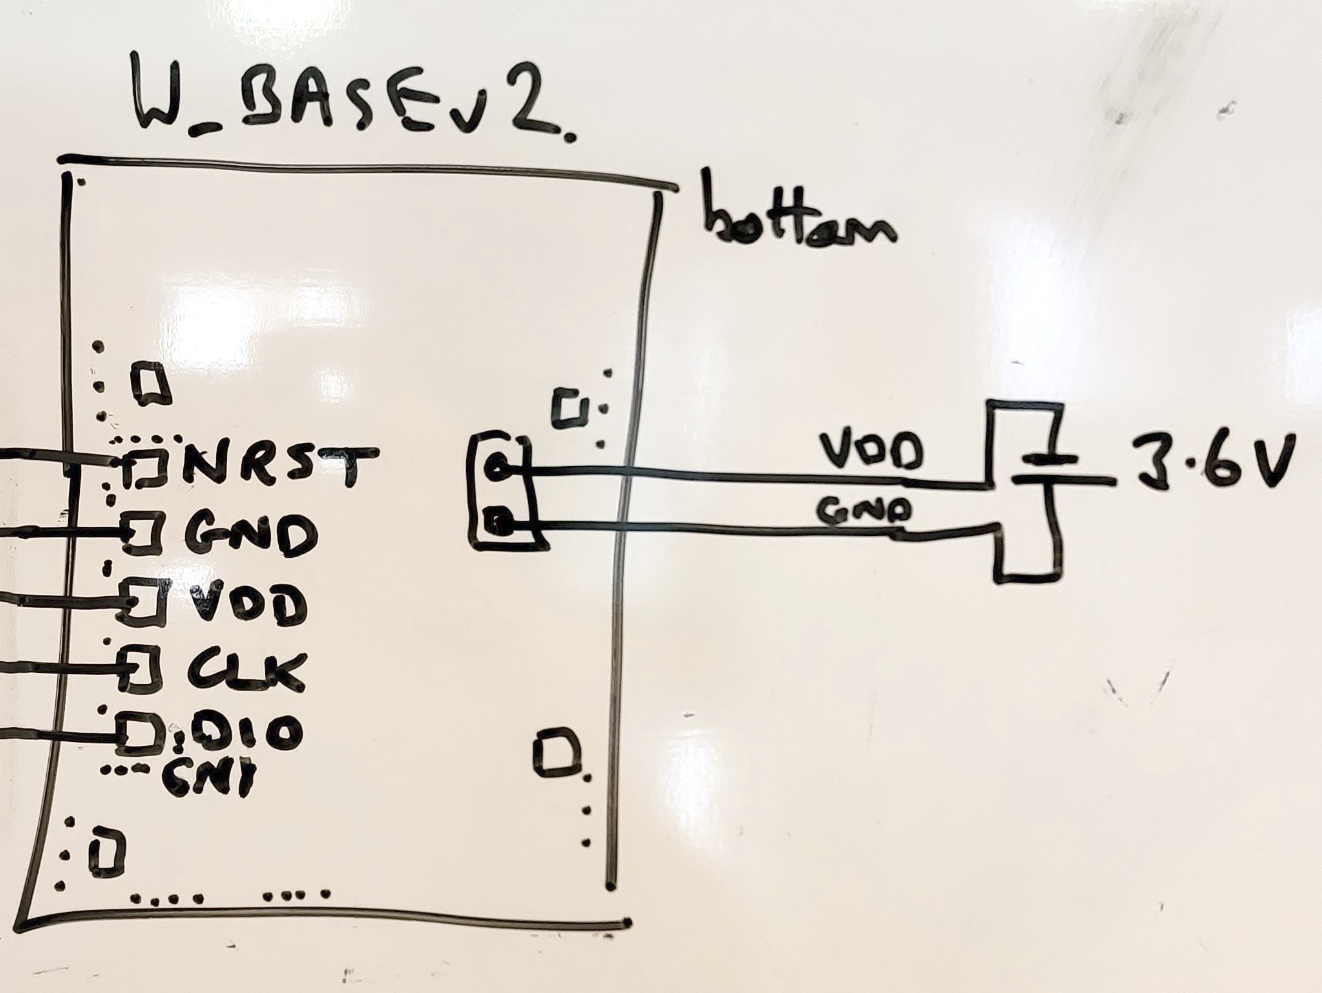 W_BASEv2.
bottom
NRST
GND
VDD
CLK
DIO
VDD
GND
3.6V